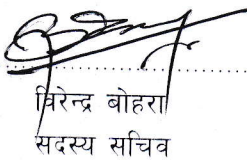 विरेन्द्र बोहरा
सदस्य सचिव